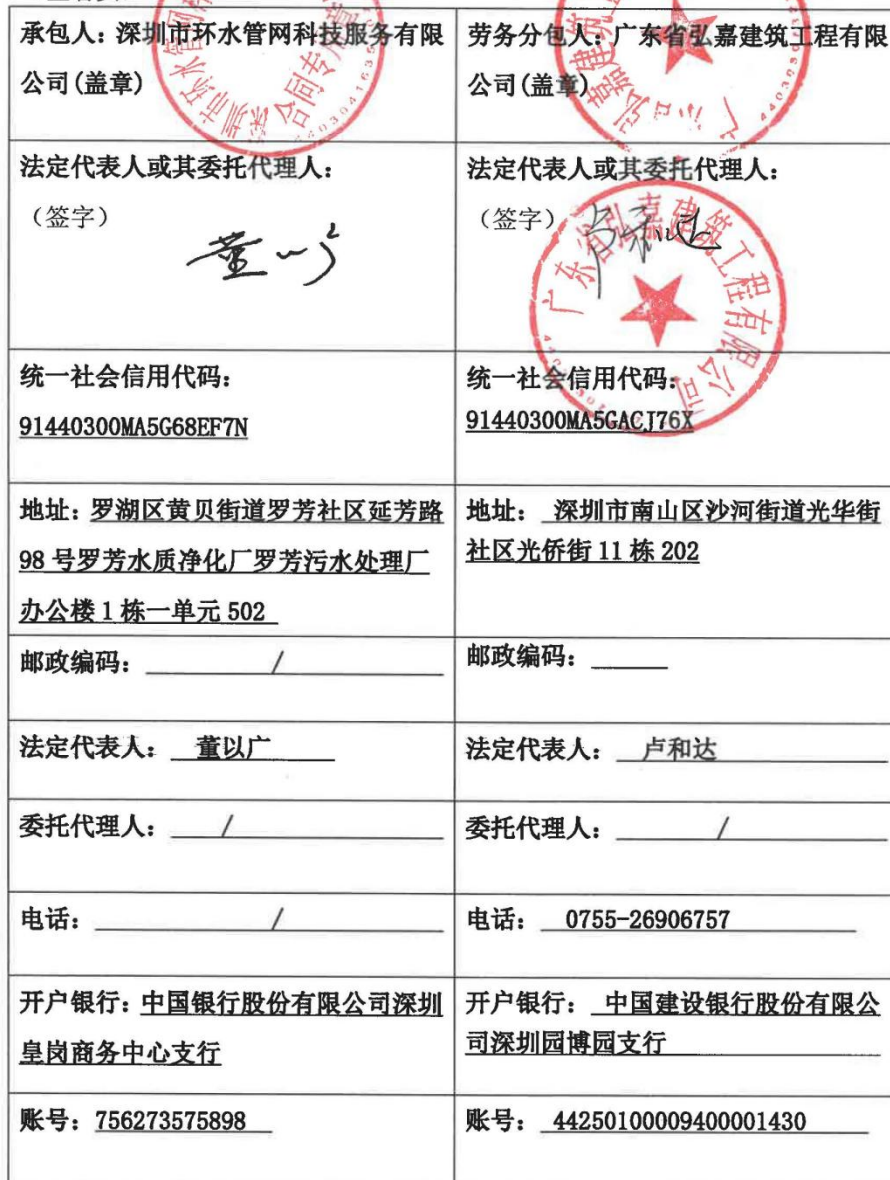 承包人：深圳市环水管网科技服务有限
公司(盖章)
劳务分包人：广东省弘嘉建筑工程有限
公司(盖章)
法定代表人或其委托代理人：
（签字）
法定代表人或其委托代理人：
（签字）
广东省弘嘉建筑工程有限公司
统一社会信用代码：
91440300MA5G68EF7N
统一社会信用代码：
91440300MA5GACJ76X
地址：罗湖区黄贝街道罗芳社区延芳路
98 号罗芳水质净化厂罗芳污水处理厂
办公楼 1 栋一单元 502
地址： 深圳市南山区沙河街道光华街
社区光侨街 11 栋 202
邮政编码： /
邮政编码：
法定代表人： 董以广
法定代表人： 卢和达
委托代理人： /
委托代理人： /
电话： /
电话： 0755-26906757
开户银行：中国银行股份有限公司深圳
皇岗商务中心支行
开户银行： 中国建设银行股份有限公
司深圳园博园支行
账号：756273575898
账号： 44250100009400001430